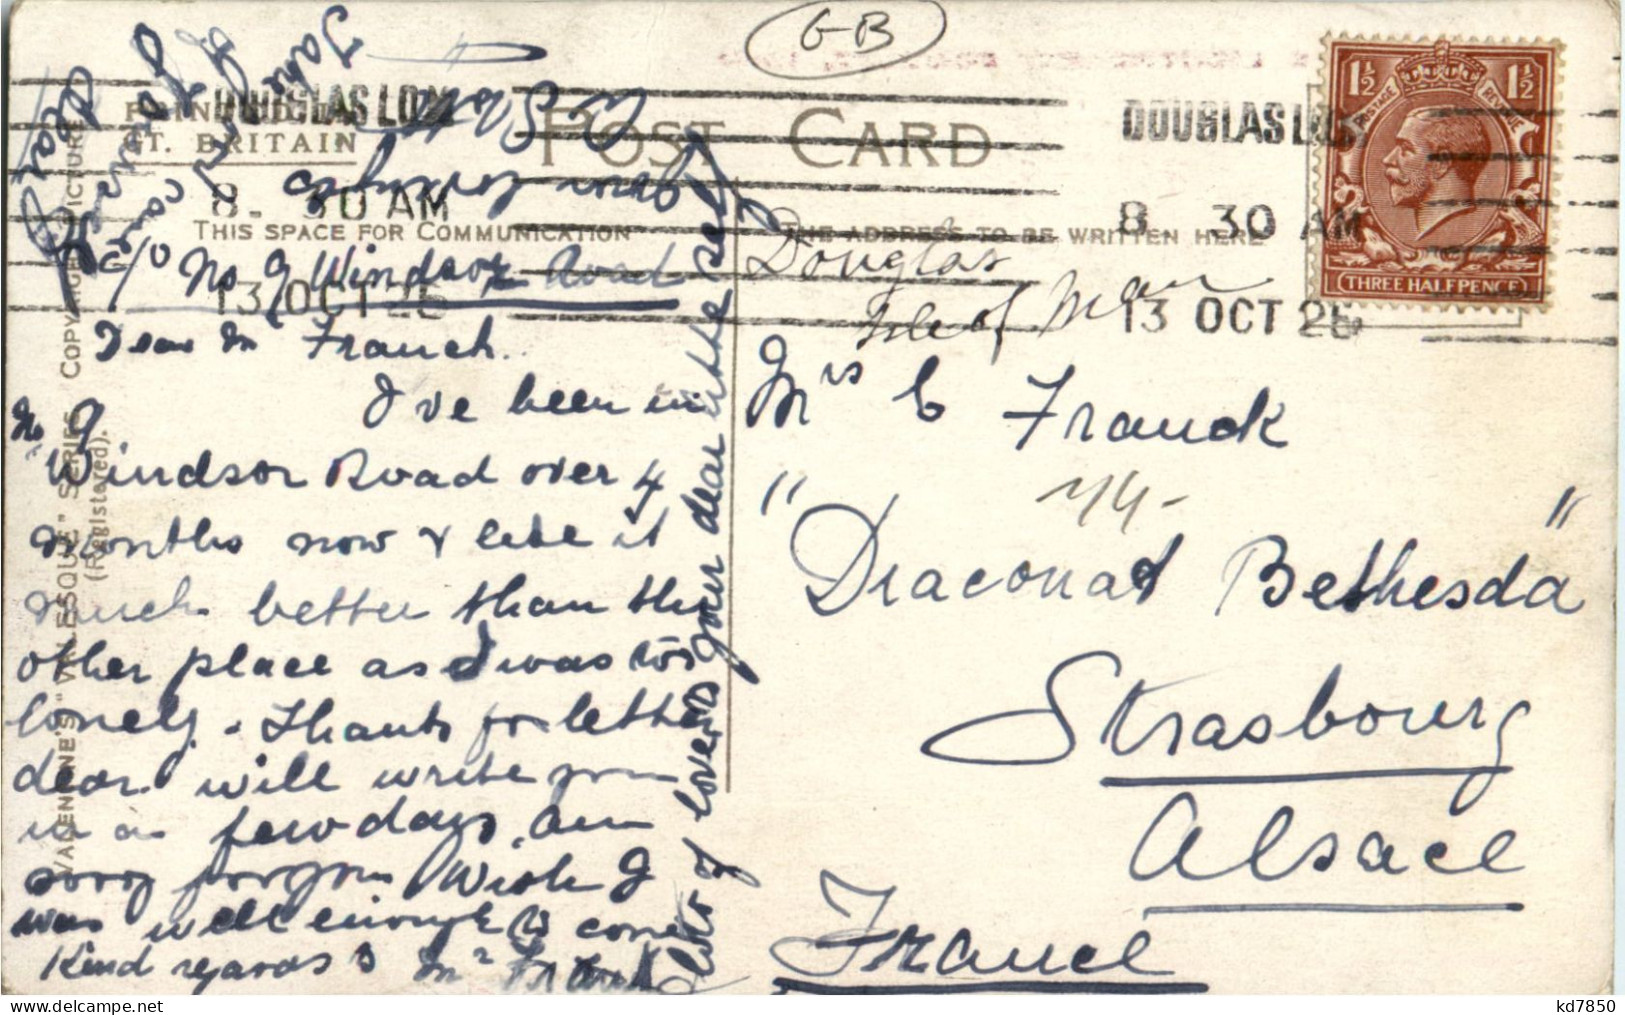 GB
POST CARD
PRINTED IN
GT. BRITAIN
DOUGLAS I.O.M.
8. 30 AM
13 OCT 25
DOUGLAS I.O.M.
8. 30 AM
13 OCT 25
POSTAGE REVENUE
1½ 1½
THREE HALFPENCE
THIS SPACE FOR COMMUNICATION
THE ADDRESS TO BE WRITTEN HERE
VALENTINE'S "VALESQUE" SERIES COPYRIGHT PICTURE
(Registered).
c/o No 9 Windsor Road
Douglas
Isle of Man
Dear Mrs Franck.
I've been in
No 9
Windsor Road over 4
months now & like it
much better than the
other place as I was so
lonely. Thanks for letter
dear will write you
in a few days. Am
sorry for you Wish I
was well enough to come
Kind regards to Mr Franck
lots of love to your dear little self
from
Take
care
dear
Mrs C Franck
74-
"Draconat Bethesda"
Strasbourg
Alsace
France
kd7850